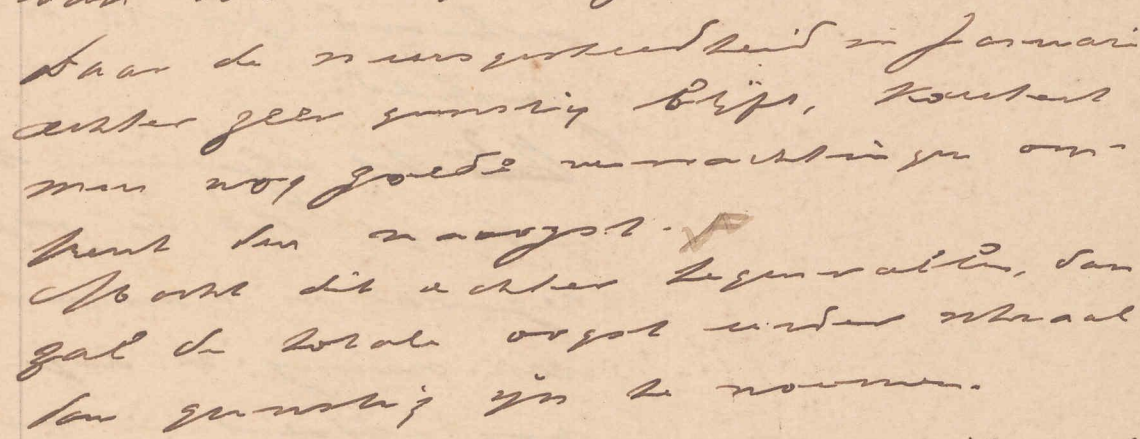 Daar de weersgesteldheid in Januari
echter zeer gunstig blijft, koestert
men nog goede verwachtingen om-
trent den naoogst.
Mocht dit echter tegenvallen, dan
zal de totale oogst eerder schraal
dan gunstig zijn te noemen.